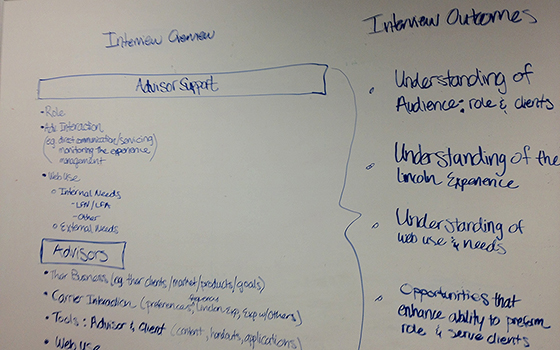 Interview Overview
Advisor Support
• Role
• Adv. Interaction
(eg. direct communication/servicing
monitoring the experience
management
• Web Use
o Internal Needs
- LFN/LFA
- Other
o External Needs
Advisors
• Their Business (eg. their clients/market/products/goals)
• Carrier Interaction (preferences, frequency, Lincoln Exp, Exp w/others)
• Tools: Advisor & Client (content, handouts, applications)
• Web Use
Interview Outcomes
Understanding of
Audience: role & clients
Understanding of the
Lincoln Experience
Understanding of
web use & needs
Opportunities that
enhance ability to preform
role & serve clients